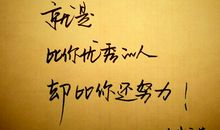 就是
比你优秀的人
却比你还努力！